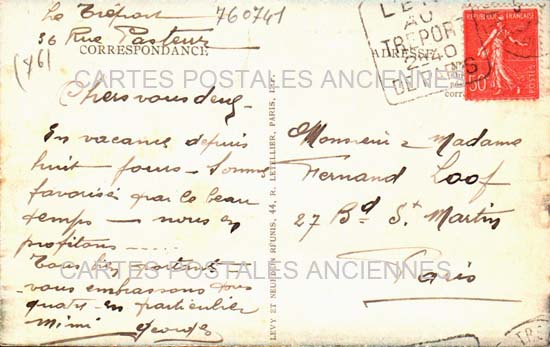 Le Tréport
36 Rue Pasteur
(76)
760741
CORRESPONDANCE
ADRESSE
CARTES POSTALES ANCIENNES
Chers vous deux
En vacances depuis
huit jours - Sommes
favorisés par le beau
temps - nous en
profitons -----
Tous bien portants -
vous embrassons
quatre en particulier
Mimi Georges
LEVY ET NEURDEIN RÉUNIS, 44, R. LETELLIER, PARIS, IMP.
LE
AU
TREPORT
DE
RÉPUBLIQUE FRANÇAISE
50
Monsieur & Madame
Fernand Loof
27 Bd St Martin
Paris
CARTES POSTALES ANCIENNES